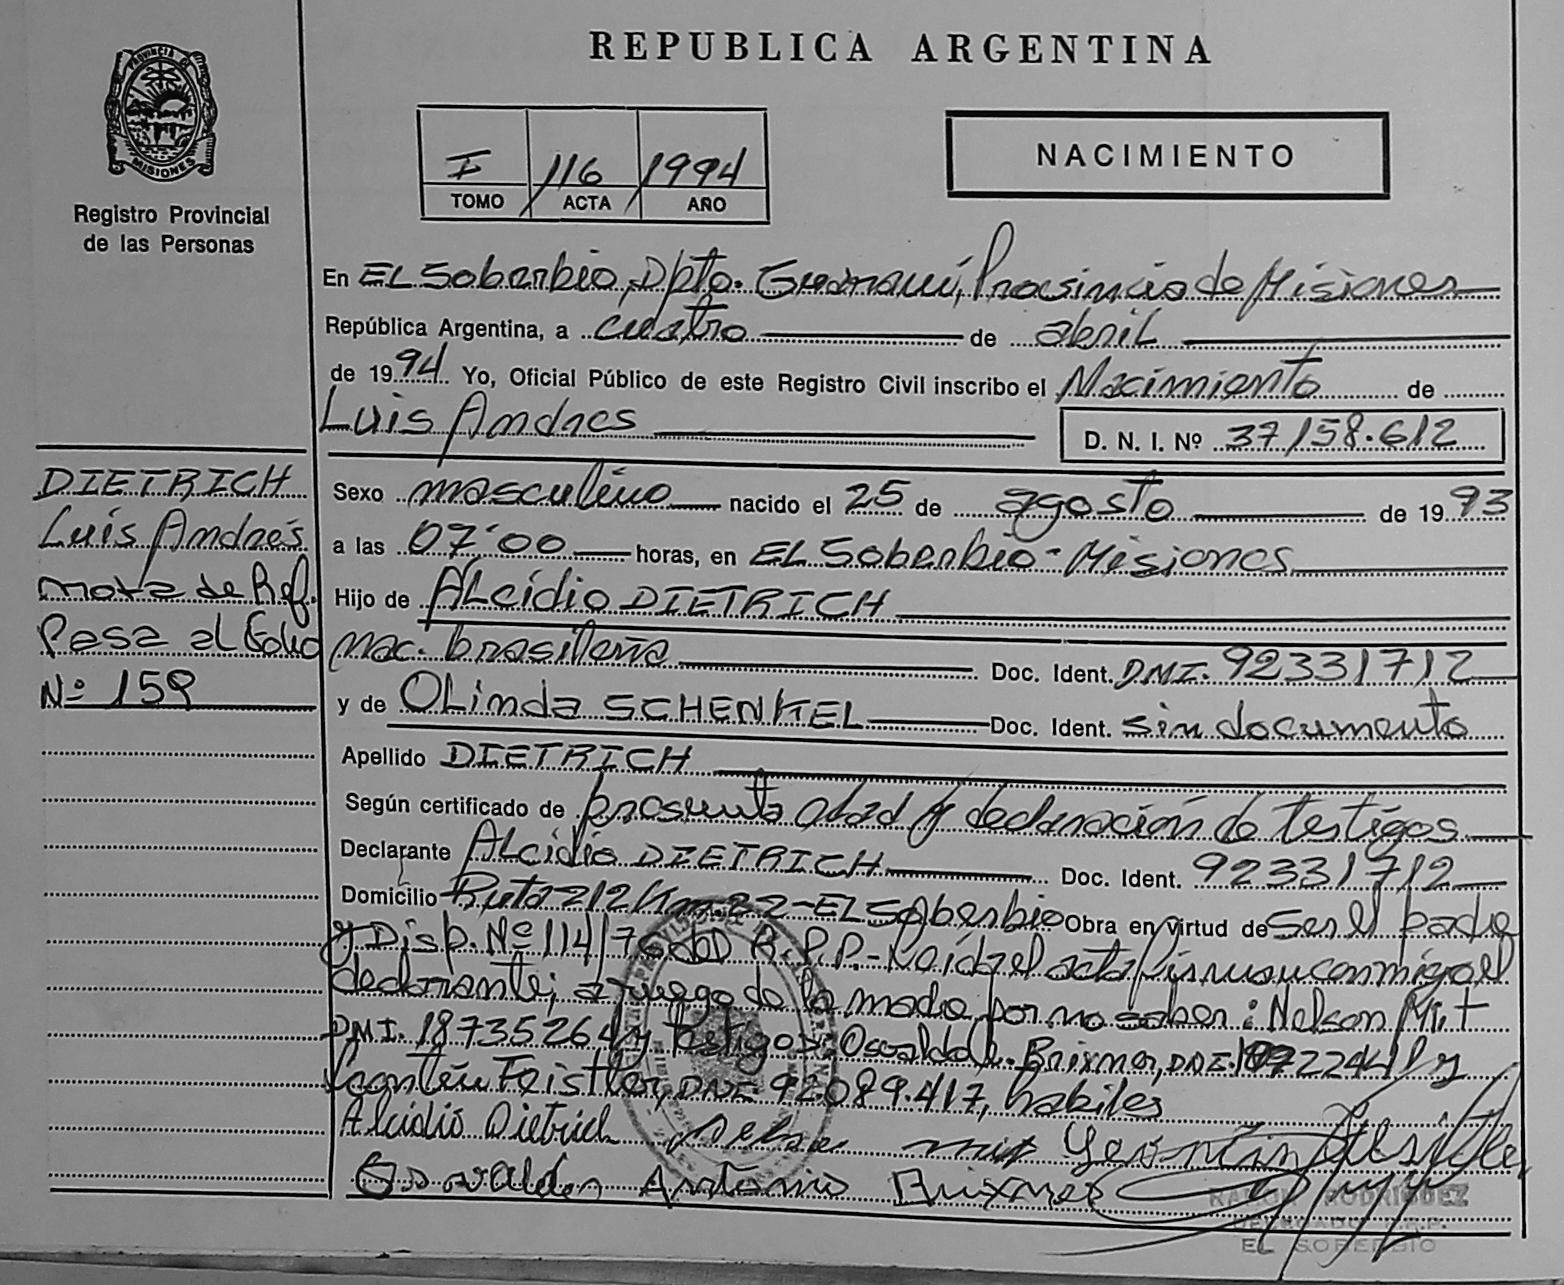 REPUBLICA ARGENTINA
PROVINCIA DE MISIONES
Registro Provincial
de las Personas
I 116 1994
TOMO ACTA AÑO
NACIMIENTO
En EL Soberbio, Dpto. Guaraní, Provincia de Misiones
República Argentina, a cuatro de abril
de 1994. Yo, Oficial Público de este Registro Civil inscribo el Nacimiento de
Luis Andres
D. N. I. Nº 37.158.612
DIETRICH
Luis Andrés
Nota de Ref.
Pasa al Folio
Nº 159
Sexo masculino nacido el 25 de agosto de 1993
a las 07:00 horas, en EL Soberbio - Misiones
Hijo de ALcidio DIETRICH
Nac. brasileña Doc. Ident. DNI. 92331712
y de OLinda SCHENKEL Doc. Ident. sin documento
Apellido DIETRICH
Según certificado de presunta edad y declaración de testigos
Declarante ALcidio DIETRICH Doc. Ident. 92331712
Domicilio Ruta 212 Km. 22 - EL Soberbio Obra en virtud de ser el padre
y Disp. Nº 114/76 del R.P.P. - Leída el acta firman conmigo el
declarante; a ruego de la madre por no saber: Nelson
DNI. 18735264 y testigos: Osvaldo A. Brixner, DNI. y
Feistler, DNI 92.089.417, habiles
Alcidio Dietrich
Osvaldo Antonio Brixner
RAMON RODRIGUEZ
DELEGADO R.P.P.
EL SOBERBIO